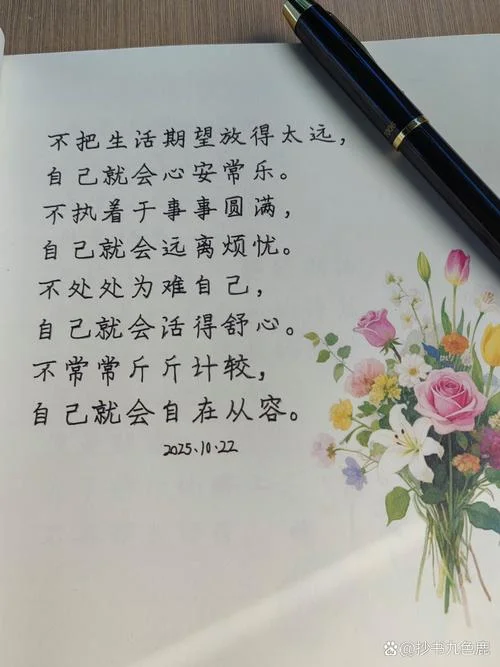 不把生活期望放得太远，
自己就会心安常乐。
不执着于事事圆满，
自己就会远离烦忧。
不处处为难自己，
自己就会活得舒心。
不常常斤斤计较，
自己就会自在从容。
2025.10.22
@抄书九色鹿